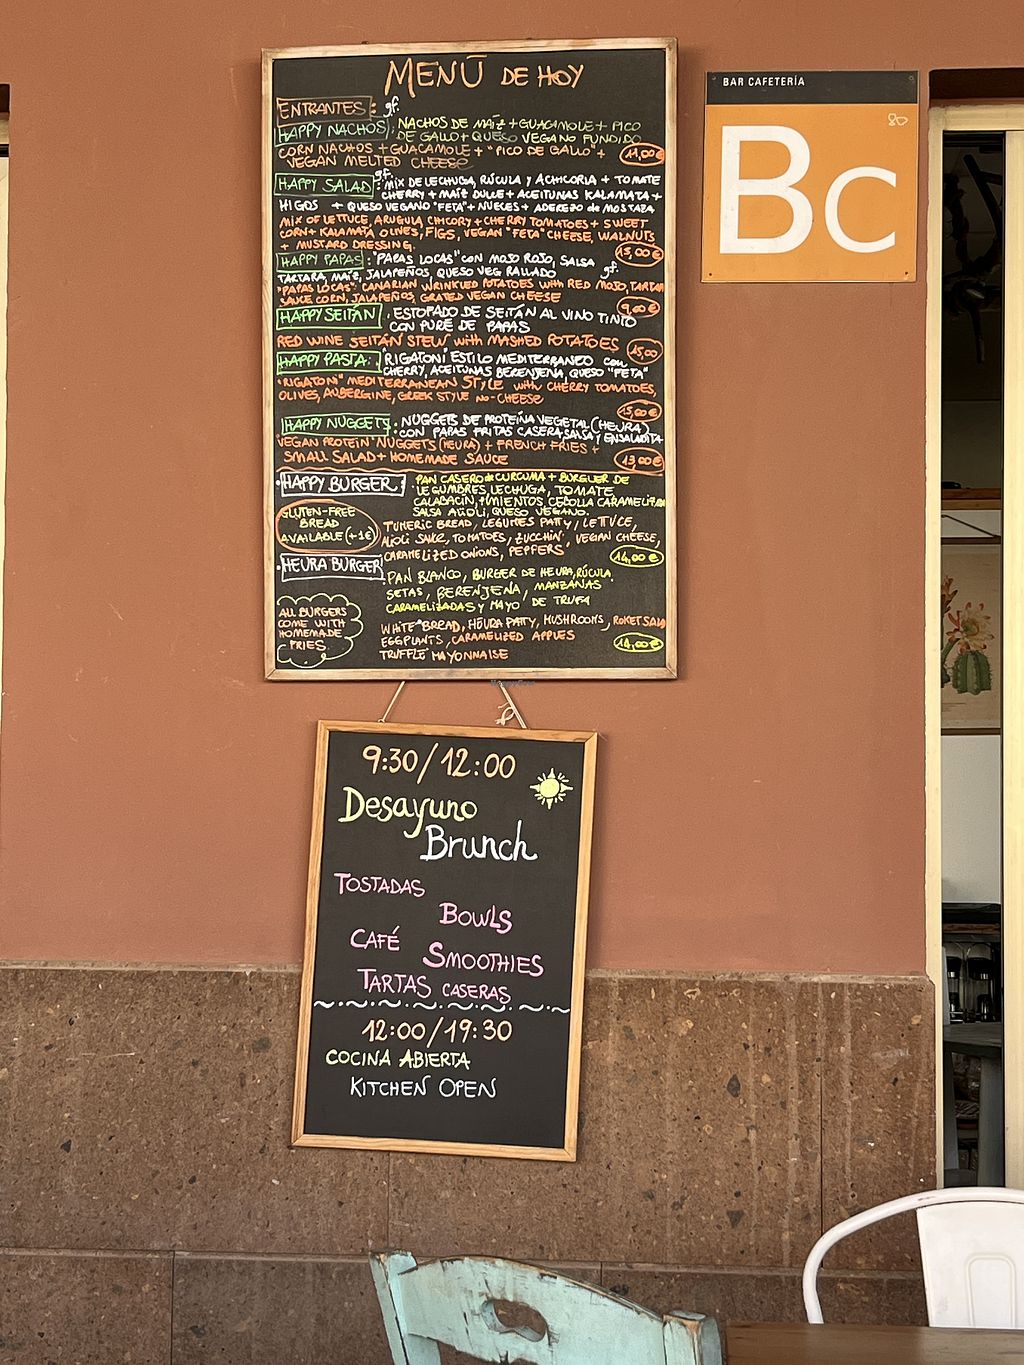 MENÙ DE HOY
ENTRANTES: gf.
HAPPY NACHOS: NACHOS DE MAÍZ + GUACAMOLE + PICO
DE GALLO + QUESO VEGANO FUNDIDO
CORN NACHOS + GUACAMOLE + "PICO DE GALLO" +
VEGAN MELTED CHEESE
11,00€
HAPPY SALAD gf.: MIX DE LECHUGA, RÚCULA y ACHICORIA + TOMATE
CHERRY + MAÍZ DULCE + ACEITUNAS KALAMATA +
HIGOS + QUESO VEGANO "FETA" + NUECES + ADEREZO de MOSTAZA
MIX OF LETTUCE, ARUGULA CHICORY + CHERRY TOMATOES + SWEET
CORN + KALAMATA OLIVES, FIGS, VEGAN "FETA" CHEESE, WALNUTS
+ MUSTARD DRESSING.
HAPPY PAPAS: "PAPAS LOCAS" CON MOJO ROJO, SALSA
TARTARA, MAÍZ, JALAPEÑOS, QUESO VEG RALLADO gf.
"PAPAS LOCAS": CANARIAN WRINKLED POTATOES with RED MOJO, TARTAR
SAUCE CORN, JALAPEÑOS, GRATED VEGAN CHEESE
9,00€
HAPPY SEITÁN: ESTOFADO DE SEITÁN AL VINO TINTO
CON PURÉ DE PAPAS
RED WINE SEITÁN STEW with MASHED POTATOES
15,00
HAPPY PASTA: "RIGATONI ESTILO MEDITERRANEO con
CHERRY, ACEITUNAS BERENJENA, QUESO "FETA"
"RIGATONI" MEDITERRANEAN STYLE with CHERRY TOMATOES,
OLIVES, AUBERGINE, GREEK STYLE NO-CHEESE
HAPPY NUGGETS: NUGGETS DE PROTEÍNA VEGETAL (HEURA)
CON PAPAS FRITAS CASERA, SALSA Y ENSALADITA
VEGAN PROTEIN NUGGETS (HEURA) + FRENCH FRIES +
SMALL SALAD + HOMEMADE SAUCE
13,00€
HAPPY BURGER: PAN CASERO de CURCUMA + BURGUER DE
LEGUMBRES, LECHUGA, TOMATE
CALABACÍN, PIMIENTOS, CEBOLLA CARAMELIZADA
SALSA ALIOLI, QUESO VEGANO.
GLUTEN-FREE
BREAD
AVAILABLE (+1€)
TUMERIC BREAD, LEGUMES PATTY, LETTUCE,
ALIOLI SAUCE, TOMATOES, ZUCCHINI, VEGAN CHEESE,
CARAMELIZED ONIONS, PEPPERS
14,00€
HEURA BURGER
PAN BLANCO, BURGER DE HEURA, RÚCULA
SETAS, BERENJENA, MANZANAS
CARAMELIZADAS Y MAYO DE TRUFA
ALL BURGERS
COME WITH
HOMEMADE
FRIES
WHITE BREAD, HEURA PATTY, MUSHROOMS, ROKET SALAD
EGGPLANTS, CARAMELIZED APPLES
TRUFFLE MAYONNAISE
14,00€
BAR CAFETERÍA
BC
9:30/12:00
Desayuno
Brunch
TOSTADAS
BOWLS
CAFÉ
SMOOTHIES
TARTAS CASERAS
12:00/19:30
COCINA ABIERTA
KITCHEN OPEN